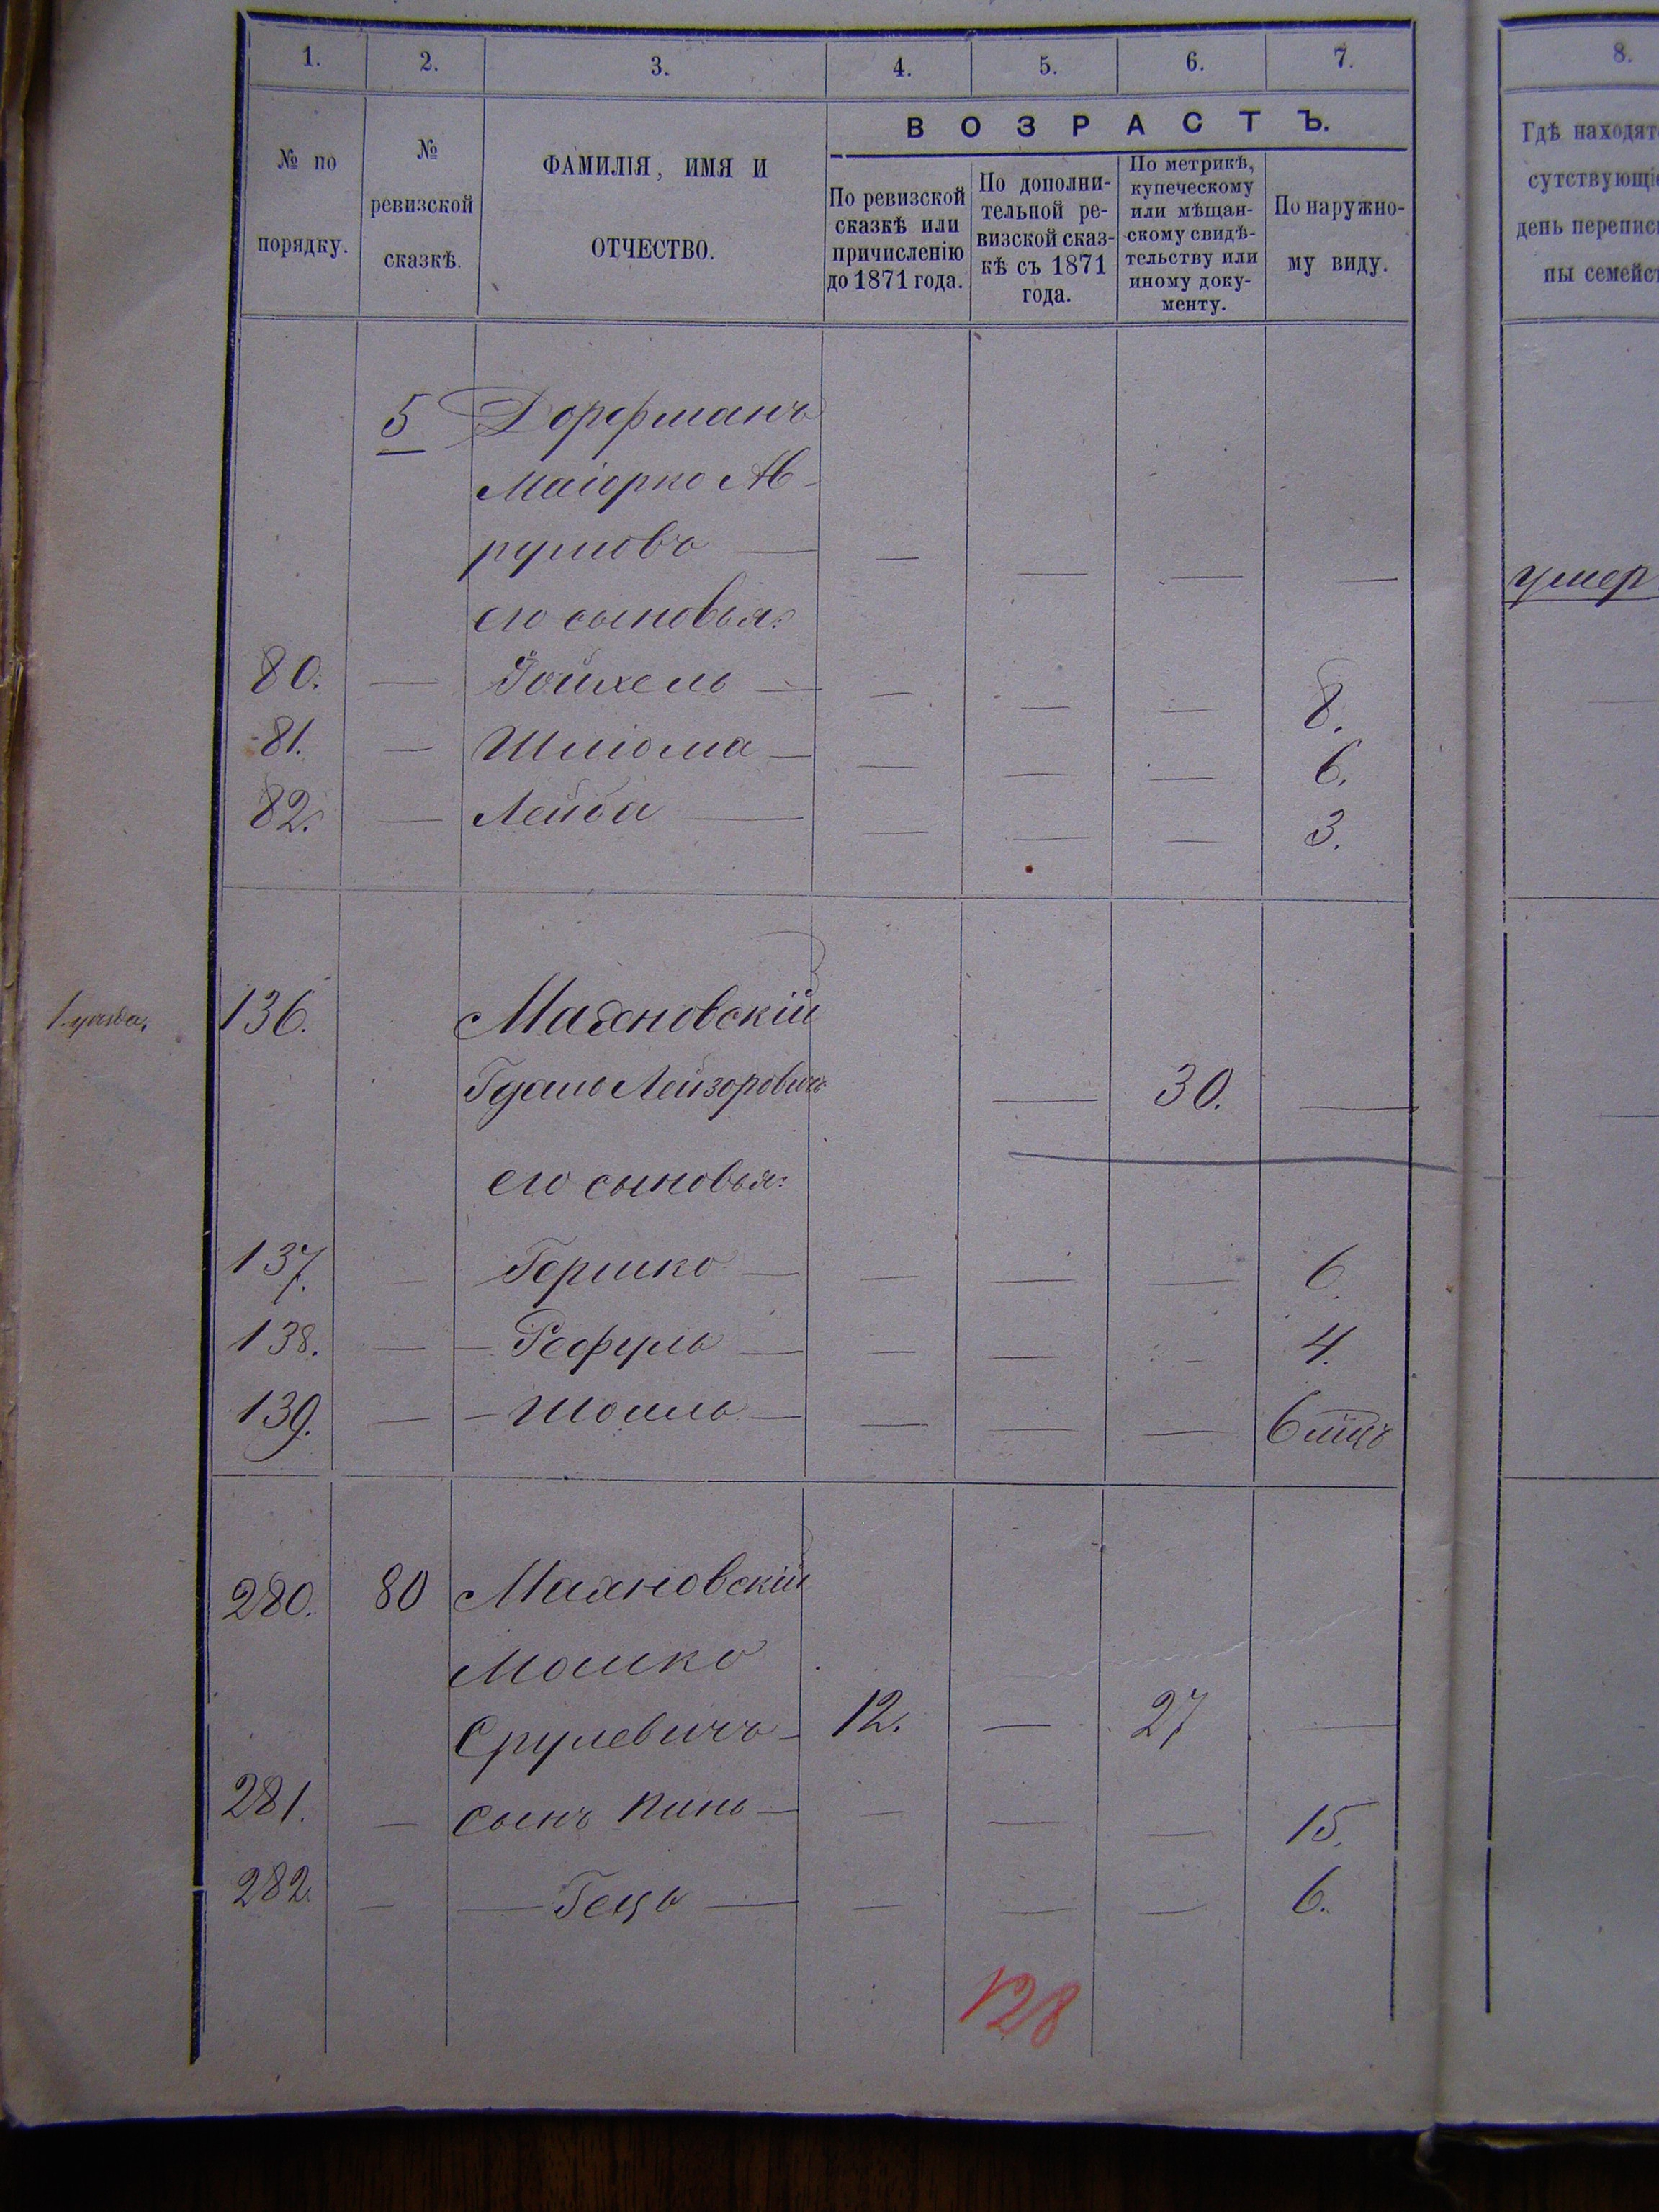 1. 2. 3. 4. 5. 6. 7. 8.
№ по порядку.
№ ревизской сказкѣ.
ФАМИЛІЯ, ИМЯ И ОТЧЕСТВО.
ВОЗРАСТЪ.
По ревизской
сказкѣ или
причисленію
до 1871 года.
По дополни-
тельной ре-
визской сказ-
кѣ съ 1871
года.
По метрикѣ,
купеческому
или мѣщан-
скому свидѣ-
тельству или
иному доку-
менту.
По наружно-
му виду.
Гдѣ находят
сутствующіе
день перепис
пы семейст
5 Дорфманъ
Маіорко Аб-
румовъ — — — — —
умер
его сыновья:
80. — Іойхель — — — — 8.
81. — Шліома — — — — 6.
82. — Лейба — — — — 3.
136. Маяновскій
Гдаль Лейзоровичъ — 30. —
его сыновья:
137. — Гершко — — — — 6.
138. — — Рефуль — — — — 4.
139. — — Шоиль — — — — 6 мцъ
280. 80 Маяновскій
Мошко
Срулевичъ — 12. — 27 —
281. — Сынъ Пинь — — — — 15.
282. — — Гецъ — — — — 6.
128